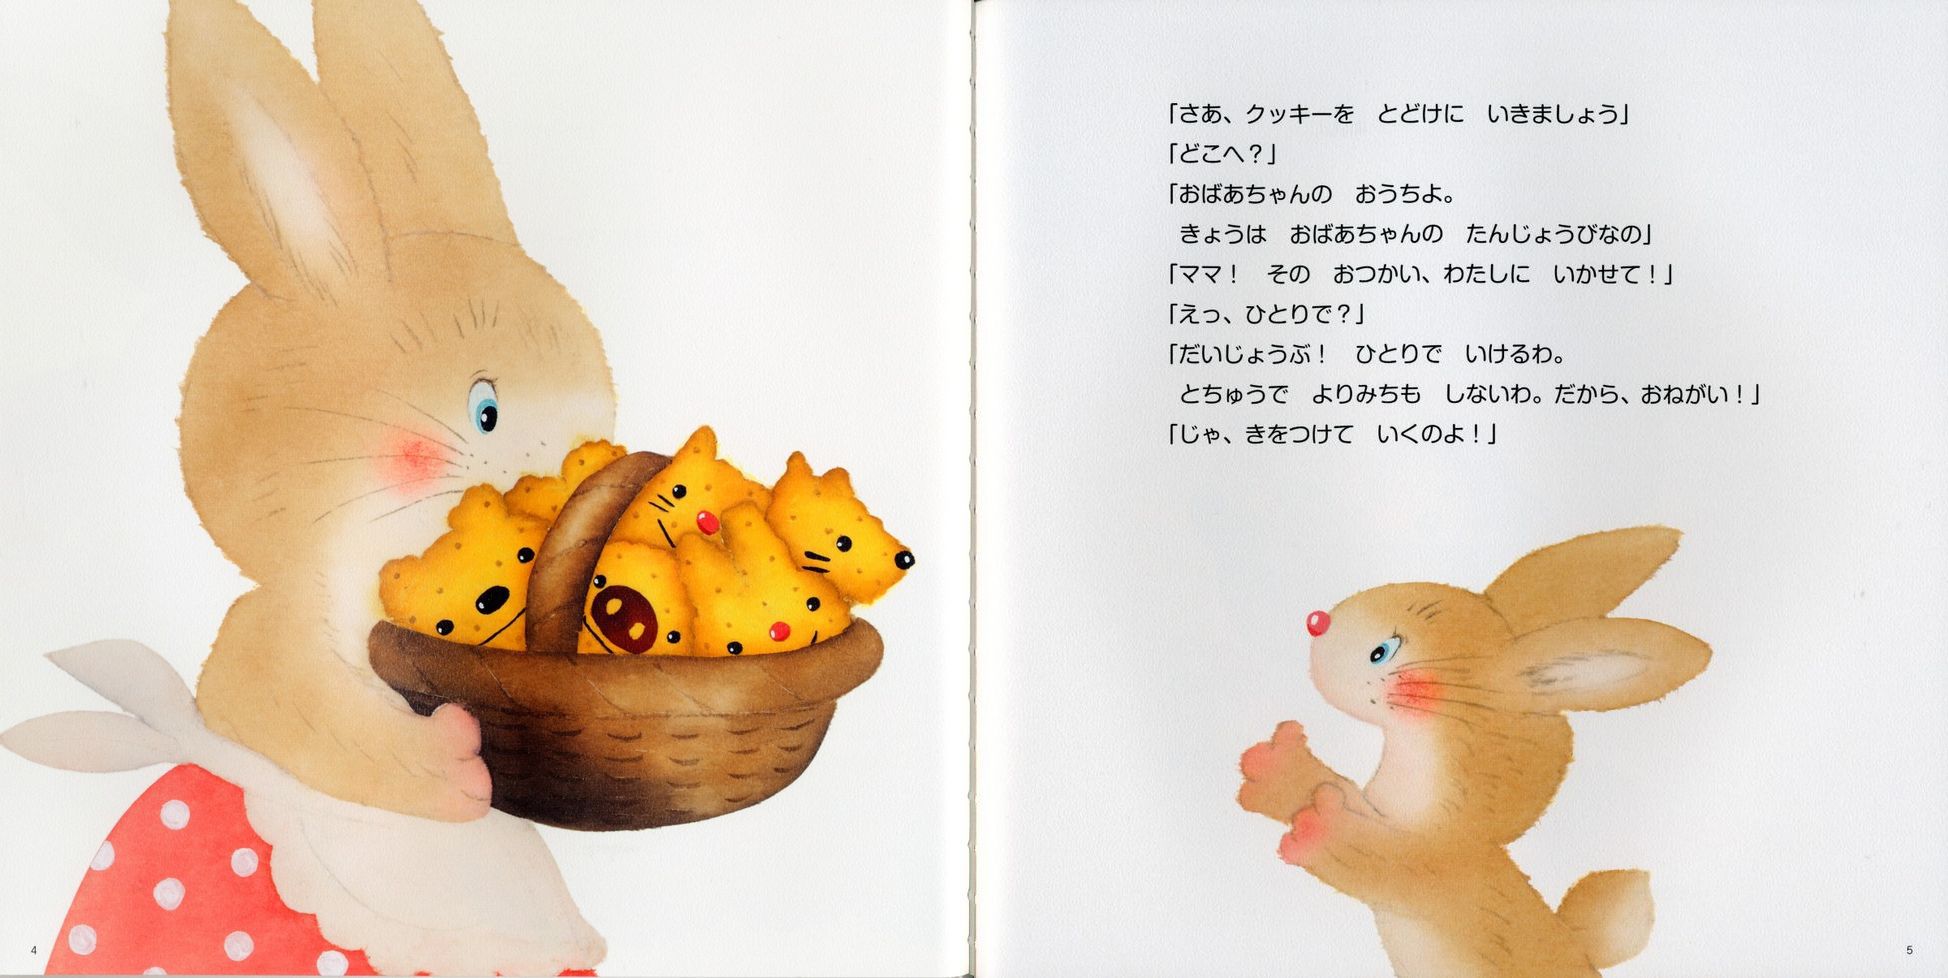 「さあ、クッキーを　とどけに　いきましょう」
「どこへ？」
「おばあちゃんの　おうちよ。
　きょうは　おばあちゃんの　たんじょうびなの」
「ママ！　その　おつかい、わたしに　いかせて！」
「えっ、ひとりで？」
「だいじょうぶ！　ひとりで　いけるわ。
　とちゅうで　よりみちも　しないわ。だから、おねがい！」
「じゃ、きをつけて　いくのよ！」
4
5